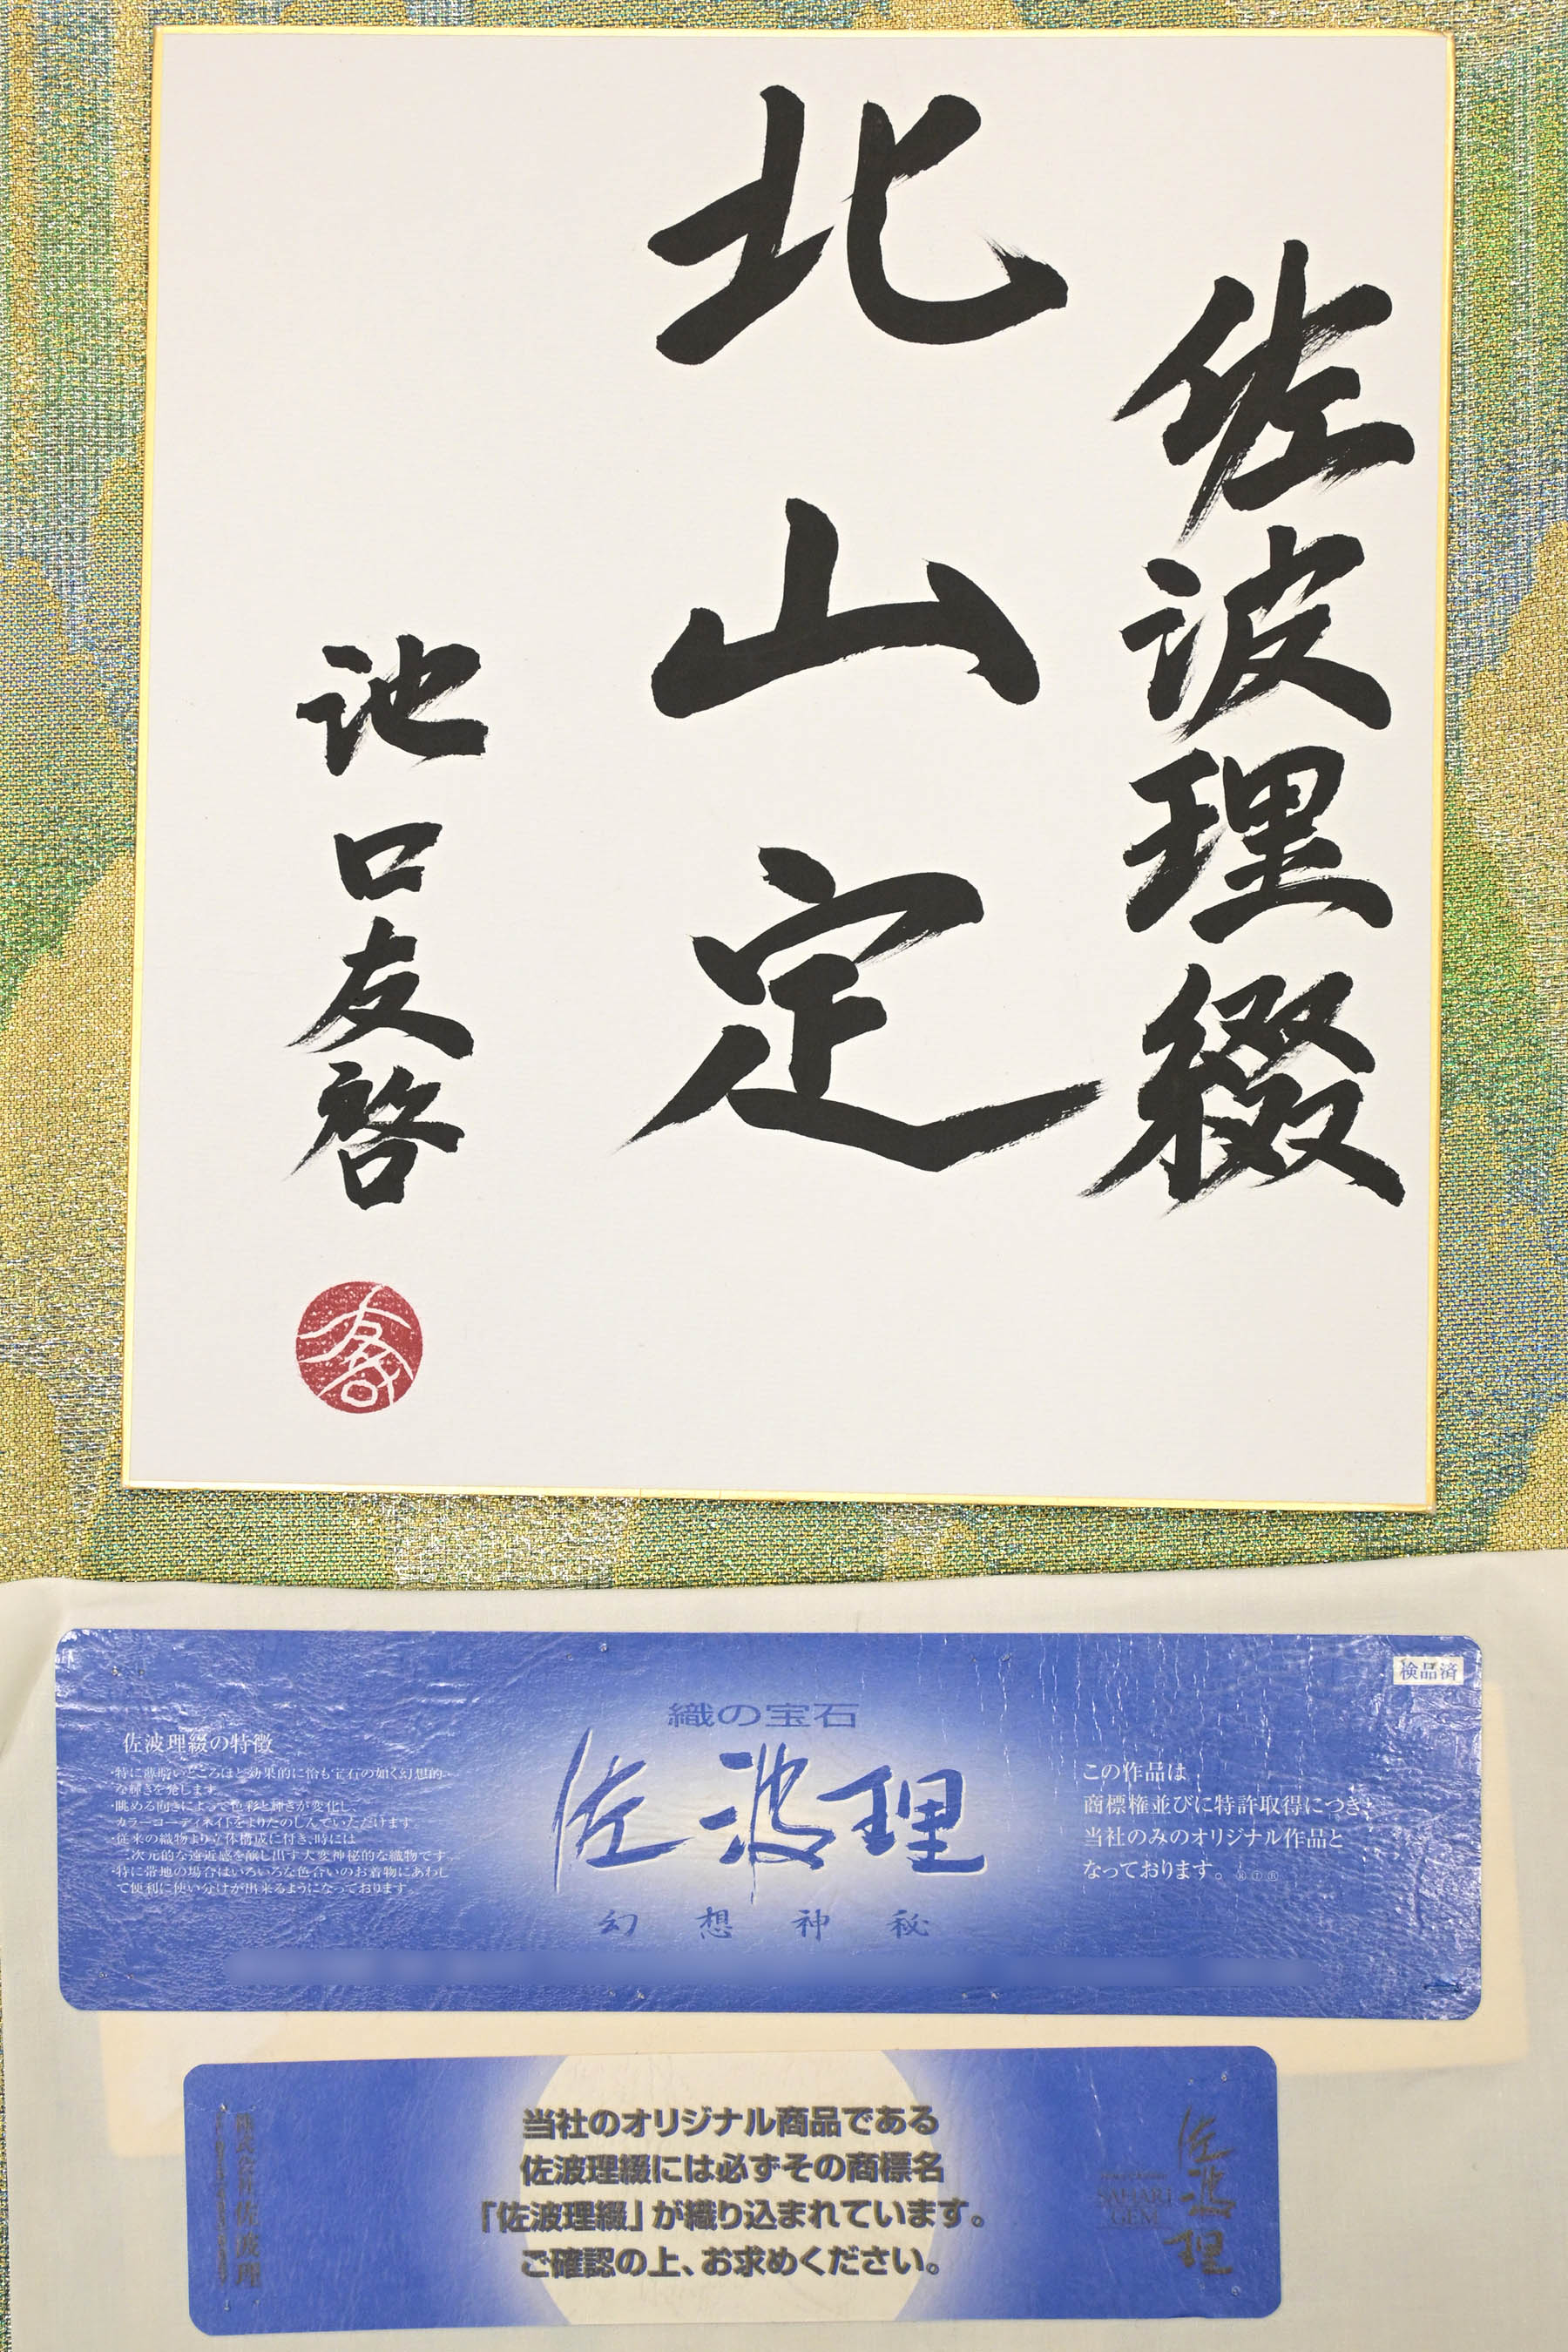 佐波理綴
北山定
池口友啓
検品済
織の宝石
佐波理
幻想神秘
佐波理綴の特徴
・特に薄暗いところほど効果的に恰も宝石の如く幻想的
な輝きを発します。
・眺める向きによって色彩と輝きが変化し、
カラーコーディネイトをよりたのしんでいただけます
・従来の織物より立体構成に付き、時には
二次元的な遠近感を醸し出す大変神秘的な織物です
・特に帯地の場合はいろいろな色合いのお着物にあわし
て便利に使い分けが出来るようになっております。
この作品は
商標権並びに特許取得につき、
当社のみのオリジナル作品と
なっております。
当社のオリジナル商品である
佐波理綴には必ずその商標名
「佐波理綴」が織り込まれています。
ご確認の上、お求めください。
佐波理
SAHARI
GEM
株式会社 佐波理